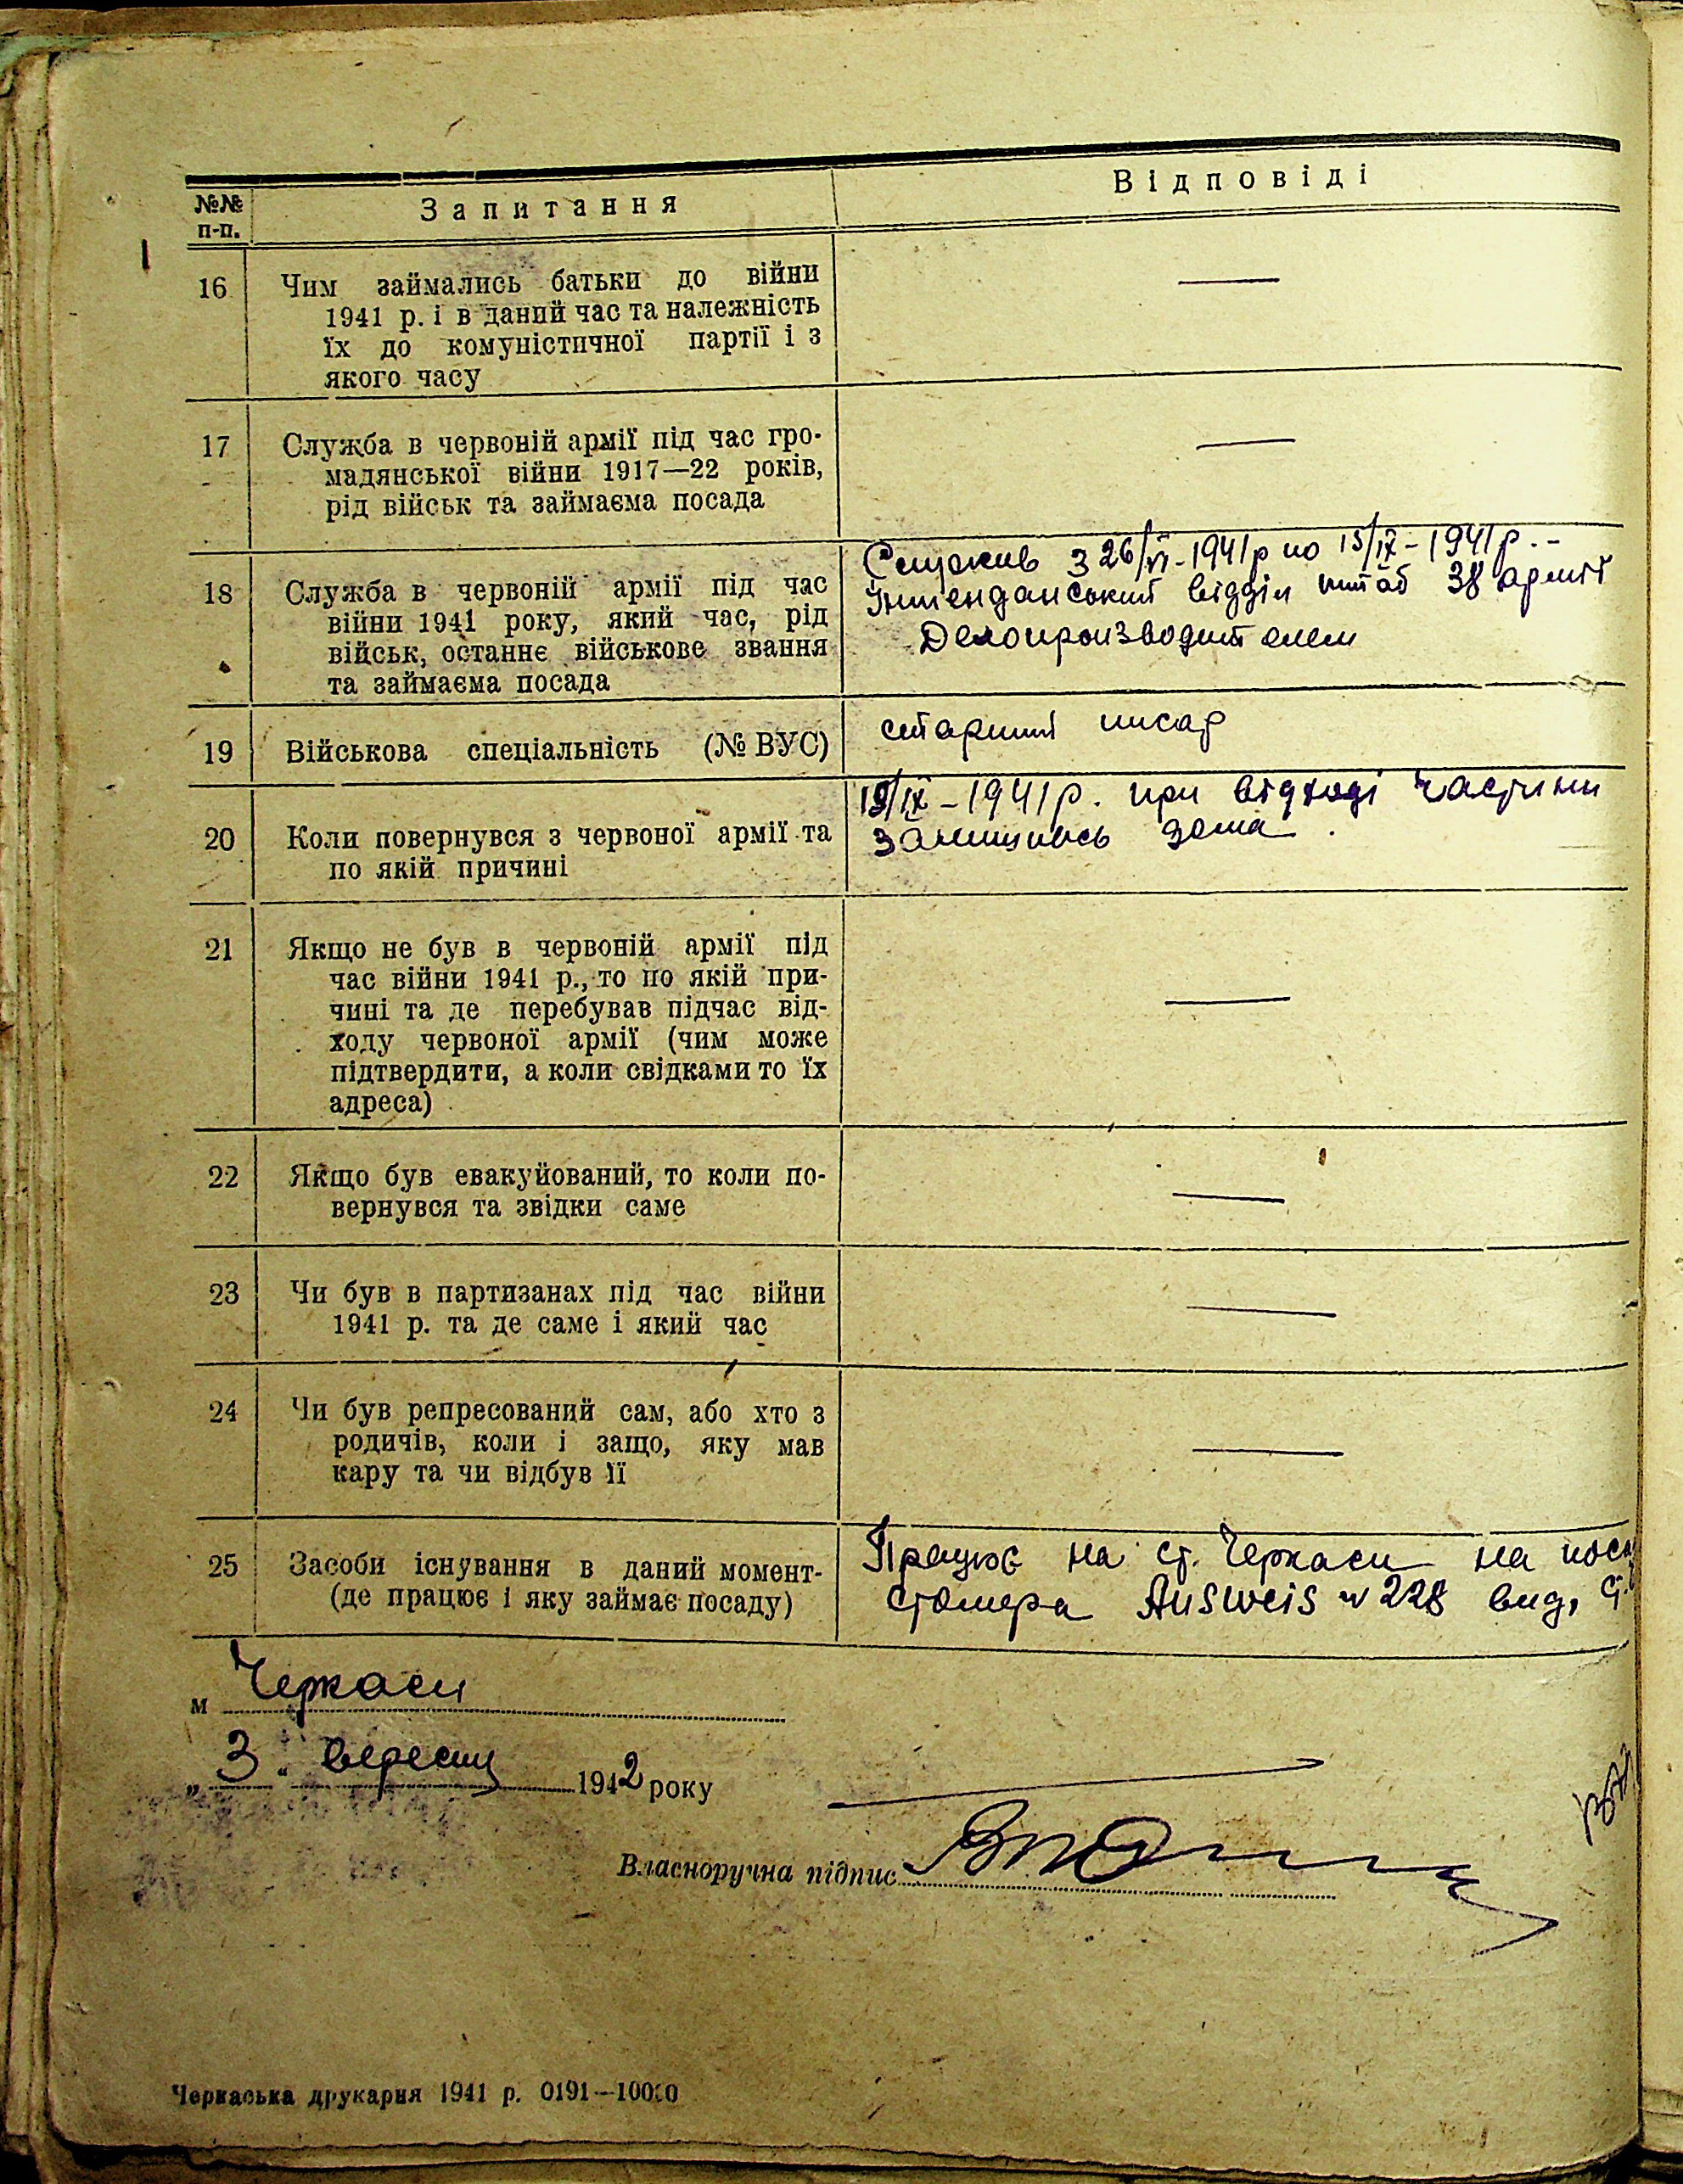 №№ п-п.
Запитання
Відповіді
16
Чим займались батьки до війни
1941 р. і в даний час та належність
їх до комуністичної партії і з
якого часу
—
17
Служба в червоній армії під час гро-
мадянської війни 1917—22 років,
рід військ та займаєма посада
—
18
Служба в червоній армії під час
війни 1941 року, який час, рід
військ, останнє військове звання
та займаєма посада
Служив з 26/VI-1941р по 15/IX-1941р.-
Інтенданський відділ штаб 38 армії
Делопроизводителем
19
Військова спеціальність (№ ВУС)
старший писар
20
Коли повернувся з червоної армії та
по якій причині
/IX-1941р. при відході частини
залишивсь дома.
21
Якщо не був в червоній армії під
час війни 1941 р., то по якій при-
чині та де перебував підчас від-
ходу червоної армії (чим може
підтвердити, а коли свідками то їх
адреса)
—
22
Якщо був евакуйований, то коли по-
вернувся та звідки саме
—
23
Чи був в партизанах під час війни
1941 р. та де саме і який час
—
24
Чи був репресований сам, або хто з
родичів, коли і защо, яку мав
кару та чи відбув її
—
25
Засоби існування в даний момент-
(де працює і яку займає посаду)
Працює на ст. Черкаси на
столяра Ausweis № 228 вид.
м Черкаси
„3" вересня 1942 року
Власноручна підпис
Черкаська друкарня 1941 р. 0191—10000